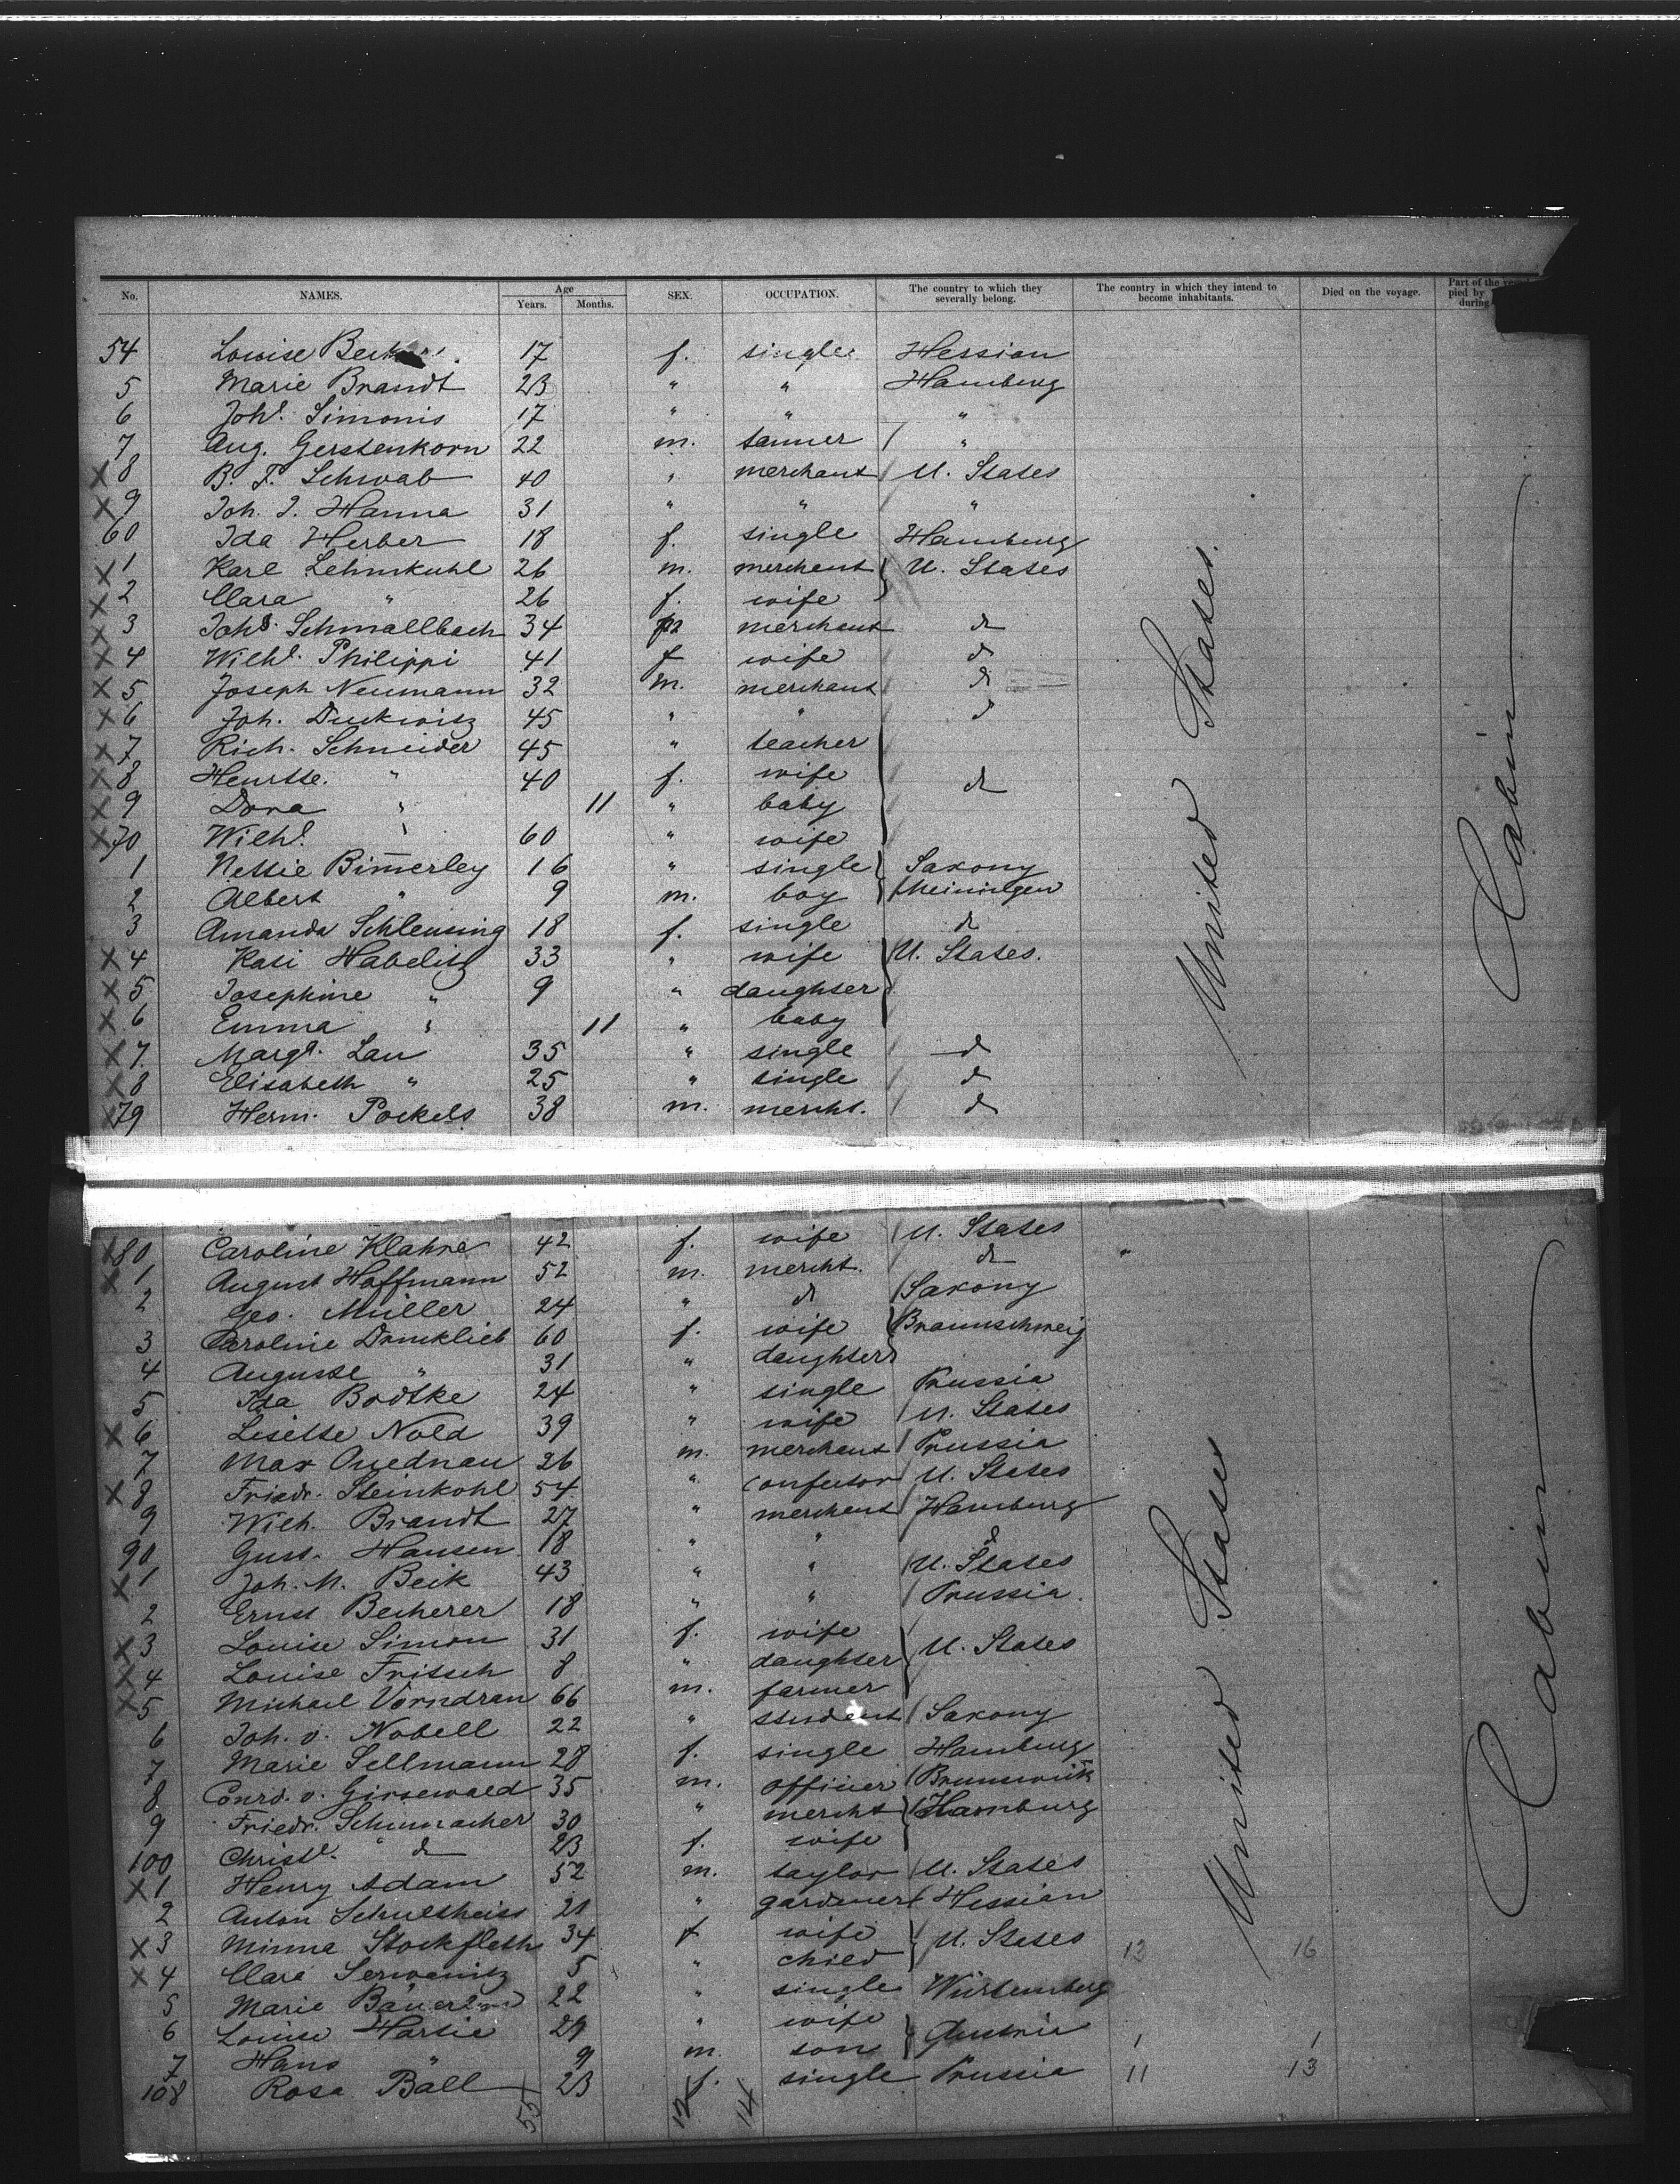 No. NAMES. Age Years. Months. SEX. OCCUPATION. The country to which they severally belong. The country in which they intend to become inhabitants. Died on the voyage. Part of the
pied by
during
54 Louise 17 f. single Hessian
5 Marie Brandt 23 " " Hamburg
6 Johe. Simonis 17 " " "
7 Aug. Gerstenkorn 22 m. tanner "
X 8 B. F. Schwab 40 " merchant U. States
X 9 Joh. J. Hanna 31 " " "
60 Ida Herber 18 f. single Hamburg
X 1 Karl Lehmkuhl 26 m. merchant U. States
X 2 Clara " 26 f. wife
X 3 Johs. Schmallbach 34 m merchant d
X 4 Wilhe. Philippi 41 f wife d
X 5 Joseph Neumann 32 m. merchant d
X 6 Joh. Duckwitz 45 " " d
X 7 Rich. Schneider 45 " teacher
X 8 Henrtte. " 40 f. wife d
X 9 Dora " 11 " baby
X 70 Wilhe. " 60 " wife
1 Nettie Bimerley 16 " single Saxony
2 Albert " 9 m. boy Meiningen
3 Amanda Schleusing 18 f. single d
X 4 Kati Habelitz 33 " wife U. States.
X 5 Josephine " 9 " daughter
X 6 Emma " 11 " baby
X 7 Margt. Lau 35 " single d
X 8 Elisabeth " 25 " single d
X 79 Herm. Pockels 38 m. mercht. d
United States.
Cabin
X 80 Caroline Klahre 42 f. wife U. States
X 1 August Hoffmann 52 m. mercht. d "
2 Geo. Müller 24 " d Saxony
3 Caroline 60 f. wife Braunschweig
4 Auguste " 31 " daughter
5 Ida Bodtke 24 " single Prussia
X 6 Lisette Nold 39 " wife U. States
7 Max Quednau 26 m. merchant Prussia
X 8 Friedr. Steinkohl 54 " confector U. States
9 Wilh. Brandt 27 " merchant Hamburg
90 Gust. Hansen 18 " " d
X 1 Joh. M. Beik 43 " " U. States
2 Ernst Becherer 18 " " Prussia.
X 3 Louise Simon 31 f. wife U. States
X 4 Louise Fritsch 8 " daughter
X 5 Michael Vorndran 66 m. farmer
6 Joh. v. Nobell 22 " student Saxony
7 Marie Sellmann 28 f. single Hamburg
8 Conrd. v. Girsewald 35 m. officier Brunswick
9 Friedr. Schumacher 30 " mercht Hamburg
100 Christe. " d 23 f. wife
X 1 Henry Adam 52 m. taylor U. States
2 Anton Schultheiss 21 " gardener Hessian
X 3 Minna Stockfleth 34 f wife U. States 12 16
X 4 Clara 5 " child
5 Marie 22 " single Würtemberg
6 Louise Hartie 29 " wife Austria 1 1
7 Hans " 9 m. son
108 Rosa Ball 23 f. single Prussia 11 13
55 12 14
United States
Cabin